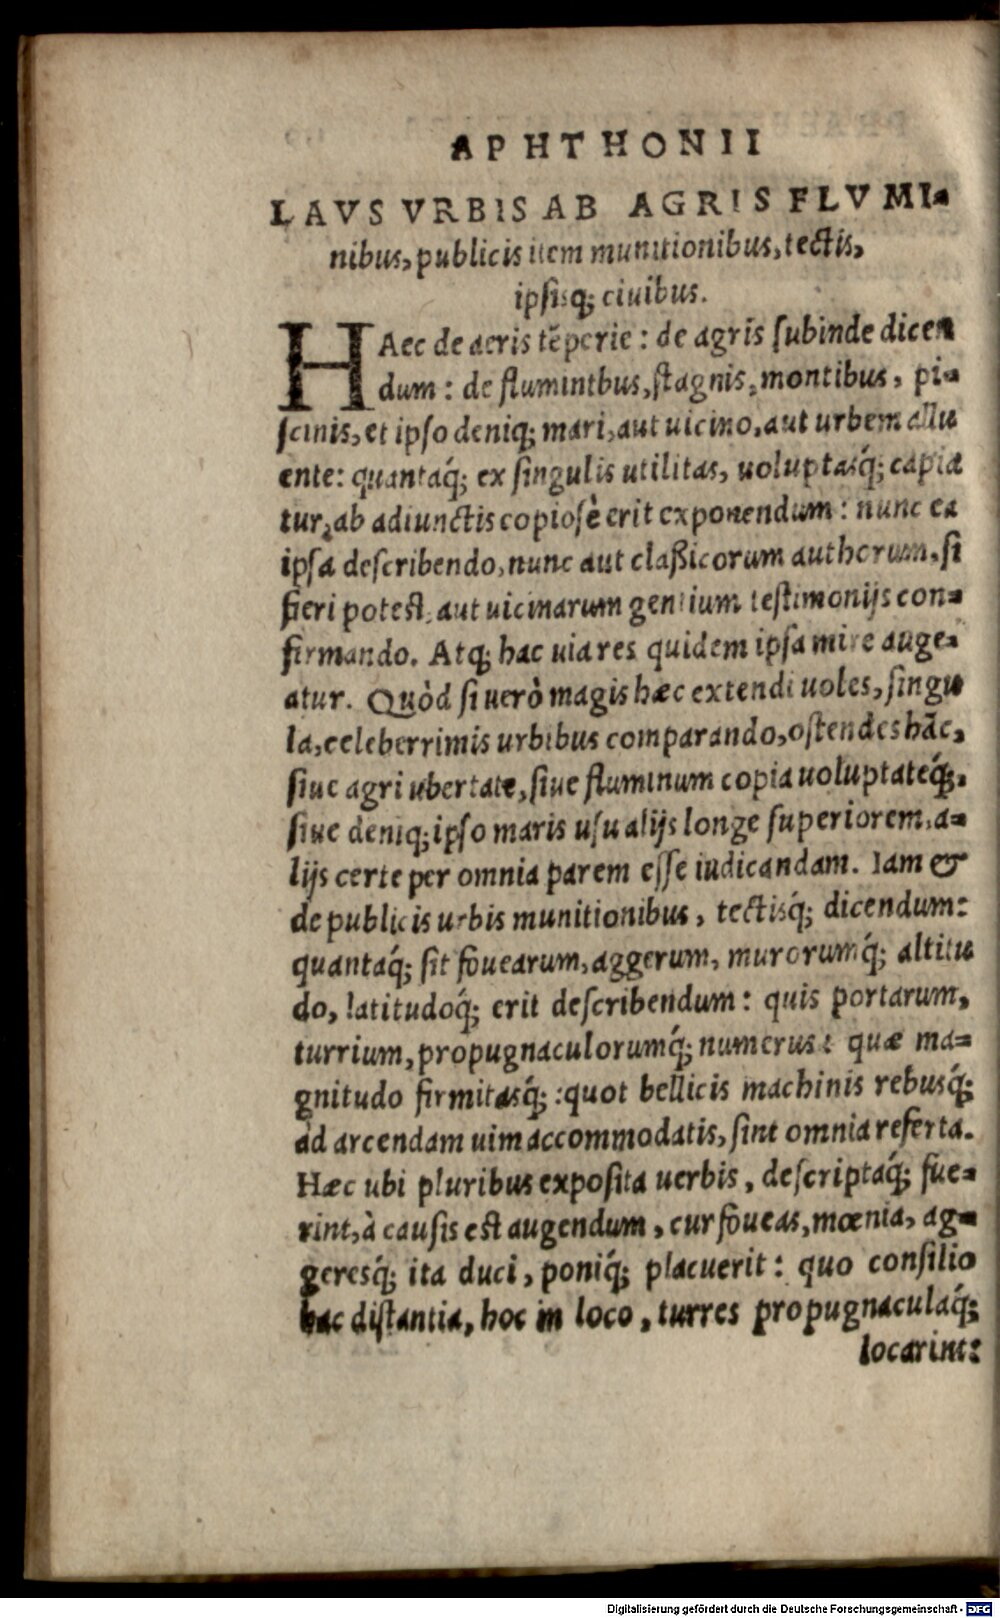 APHTHONII
LAVS VRBIS AB AGRIS FLVMI-
nibus, publicis item munitionibus, tectis,
ipsisq; ciuibus.
HAec de aeris tẽperie : de agris subinde dicen
dum : de flumintbus, stagnis, montibus, pi-
scinis, et ipso deniq; mari, aut uicino, aut urbem allu
ente: quantaq́; ex singulis utilitas, uoluptasq́; capia
tur, ab adiunctis copiosè erit exponendum : nunc ea
ipsa describendo, nunc aut claßicorum authorum, si
fieri potest, aut uicinarum gentium testimonijs con-
firmando. Atq; hac uia res quidem ipsa mire auge-
atur. Quòd si uerò magis hæc extendi uoles, singu
la, celeberrimis urbibus comparando, ostendes hãc,
siue agri ubertate, siue fluminum copia uoluptateq́;,
siue deniq; ipso maris usu alijs longe superiorem, a-
lijs certe per omnia parem esse iudicandam. Iam &
de publicis urbis munitionibus, tectisq́; dicendum:
quantaq́; sit fouearum, aggerum, murorumq́; altitu
do, latitudoq́; erit describendum : quis portarum,
turrium, propugnaculorumq́; numerus : quæ ma-
gnitudo firmitasq́; : quot bellicis machinis rebusq́;
ad arcendam uim accommodatis, sint omnia referta.
Hæc ubi pluribus exposita uerbis, descriptaq́; fue-
rint, à causis est augendum, cur foueas, mœnia, ag-
geresq́; ita duci, poniq́; placuerit : quo consilio
hac distantia, hoc in loco, turres propugnaculaq́;
locarint:
Digitalisierung gefördert durch die Deutsche Forschungsgemeinschaft - DFG